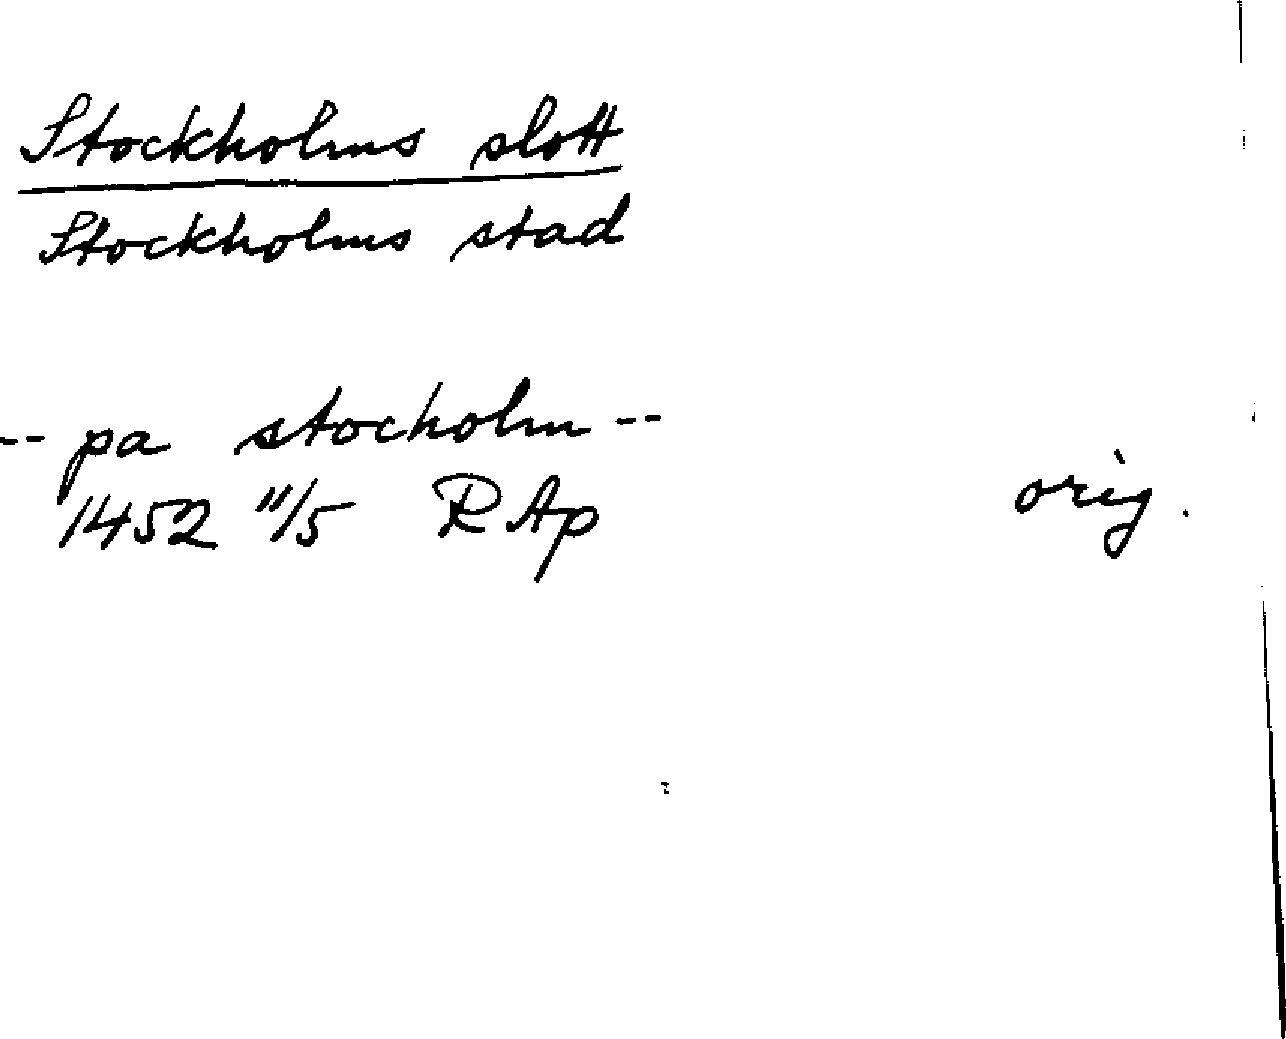 Stockholms slott
Stockholms stad
-- pa stocholm --
1452 11/5 RAp orig.